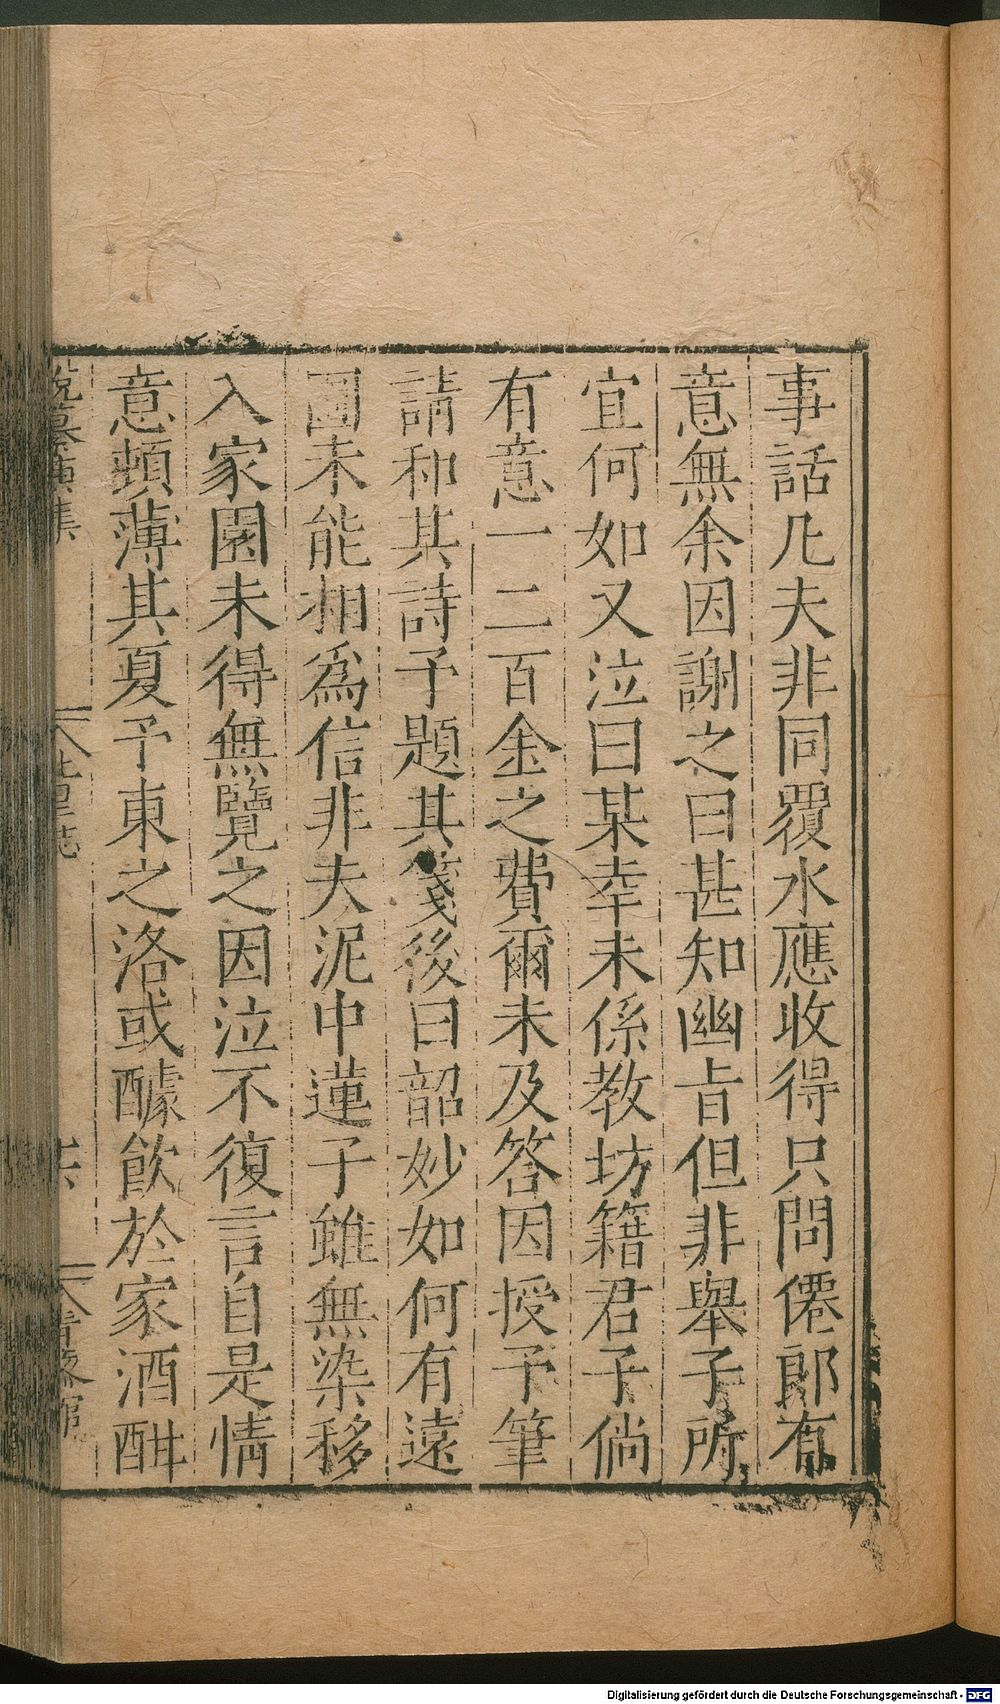 事話凡夫非同覆水應收得只問僊郎有
意無余因謝之曰甚知幽旨但非舉子所
宜何如又泣曰某幸未係教坊籍君子倘
有意一二百金之費爾未及答因授予筆
請和其詩予題其箋後曰韶妙如何有遠
圖未能相爲信非夫泥中蓮子雖無染移
入家園未得無覽之因泣不復言自是情
意頓薄其夏予東之洛或醵飲於家酒酣
說纂演集
北里誌
Digitalisierung gefördert durch die Deutsche Forschungsgemeinschaft - DFG